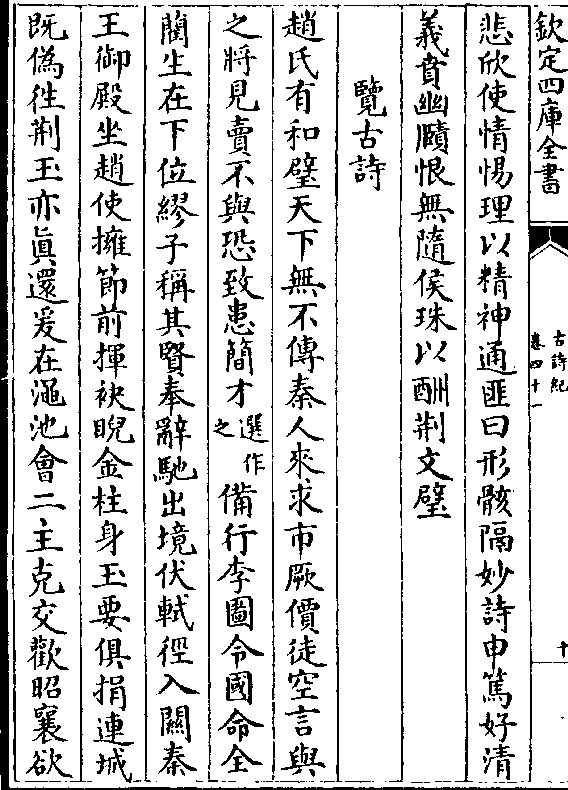 欽定四庫全書
古詩紀
卷四十一
十
悲欣使情惕理以精神通匪曰形骸隔妙詩申篤好清
義貫幽賾恨無隨侯珠以酬荆文璧
覽古詩
趙氏有和璧天下無不傳秦人來求市厥價徒空言與
之將見賣不與恐致患簡才選作之備行李圖令國命全
藺生在下位繆子稱其賢奉辭馳出境伏軾徑入關秦
王御殿坐趙使擁節前揮袂睨金柱身玉要俱捐連城
既偽徃荆玉亦眞還爰在澠池會二主克交歡昭襄欲